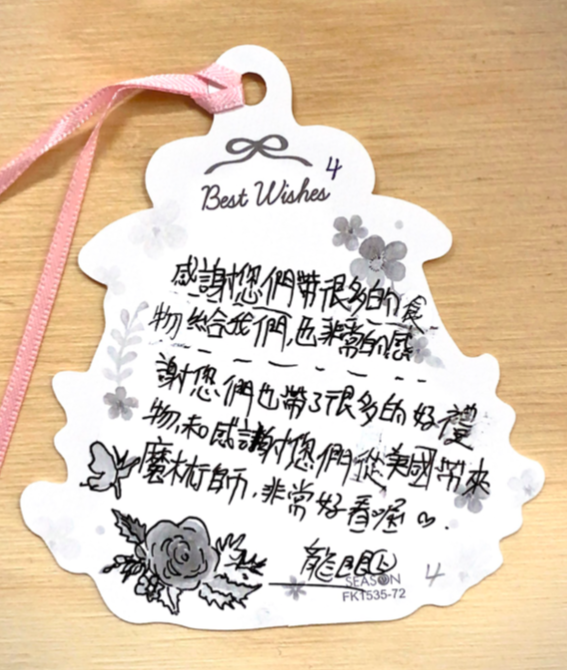 4
Best Wishes
感謝您們帶很多的食
物給我們,也非常的感
謝您們也帶了很多的好禮
物,和感謝您們從美國帶來
魔術師,非常好看喔♡.
龍
SEASON
FK1535-72
4